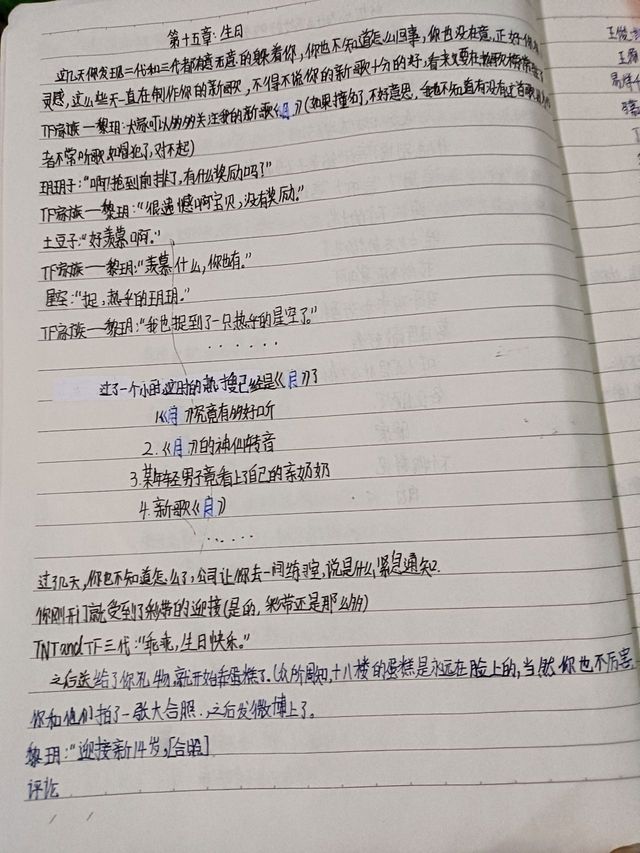 第十五章:生日
过几天你发现二代和三代都有意无意的躲着你,你也不知道怎么回事,你也没在意,正好你有
灵感,这么些天一直在制作你的新歌,不得不说你的新歌十分的好,看来又要在
TF家族—黎玥:大家可以多多关注我的新歌《月》(如果撞名了,不好意思,我也不知道有没有这首歌,
者不常听歌,如冒犯了,对不起)
玥玥子:“啊!抢到前排了,有什么奖励吗?”
TF家族—黎玥:“很遗憾啊宝贝,没有奖励。”
土豆子:“好羡慕啊。”
TF家族—黎玥:“羡慕什么,你也有。”
星空:“捉,热乎的玥玥。”
TF家族—黎玥:“我也捉到了一只热乎的星空了。”
......
过了一个小时,这时的热搜已经是《月》了
1.《月》究竟有多好听
2.《月》的神仙转音
3.某年轻男子竟看上了自己的亲奶奶
4.新歌《月》
......
过了几天,你也不知道怎么了,公司让你去一间练习室,说是什么紧急通知.
你刚开门就受到了彩带的迎接(是的,彩带还是那么多)
TNT and TF三代:“乖乖,生日快乐。”
之后送给了你礼物,就开始弄蛋糕了.(众所周知,十八楼的蛋糕是永远在脸上的,当然你也不厉害
你和他们拍了一张大合照.,之后发微博上了。
黎玥:“迎接新14岁,[合照]
评论
王俊
王源
易烊千